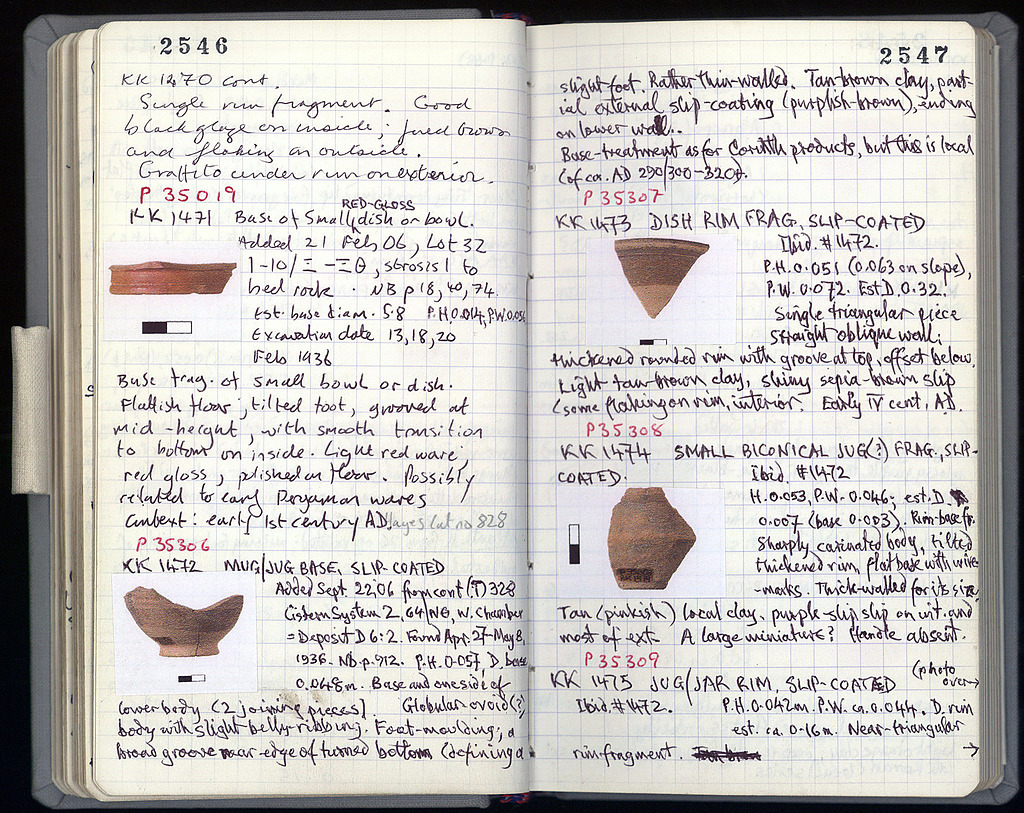 2546
KK 1470 cont.
Single rim fragment. Good
black glaze on inside; fired brown
and flaking on outside.
Graffito under rim on exterior.
P 35019
RED-GLOSS
KK 1471 Base of small dish or bowl.
Added 21 Feb 06, Lot 32
1-10/Ξ-ΞΘ, strosis 1 to
bed rock. NB p 18, 40, 74.
Est. base diam. 5.8 P.H. 0.014, P.W. 0.056
Excavation date 13, 18, 20
Feb 1936
Base frag. of small bowl or dish.
Flattish floor; tilted foot, grooved at
mid-height, with smooth transition
to bottom on inside. Light red ware,
red gloss, polished on floor. Possibly
related to early Pergamon wares
Context: early 1st century AD. Hayes Cat no 828
P 35306
KK 1472 MUG/JUG BASE, SLIP-COATED
Added Sept. 22, 06 from cont (T) 328
Cistern System 2, 64/ΝΘ, W. Chamber
= Deposit D 6:2. Found Apr. 27-May 8,
1936. Nb p. 912. P.H. 0.057, D. base
0.048m. Base and one side of
lower body (2 joining pieces). Globular-ovoid(?)
body with slight belly-ribbing. Foot-moulding; a
broad groove near edge of turned bottom (defining a
2547
slight foot. Rather thin-walled. Tan-brown clay, part-
ial external slip-coating (purplish-brown), ending
on lower wall.
Base-treatment as for Corinth products, but this is local
(of ca. AD 290/300-320).
P 35307
KK 1473 DISH RIM FRAG., SLIP-COATED
Ibid. #1472.
P.H. 0.051 (0.063 on slope),
P.W. 0.072. Est D. 0.32.
Single triangular piece
straight oblique wall;
thickened rounded rim with groove at top, offset below.
Light tan-brown clay, shiny sepia-brown slip
(some flaking on rim, interior. Early IV cent. AD.
P 35308
KK 1474 SMALL BICONICAL JUG(?) FRAG., SLIP-
COATED. Ibid. #1472
H. 0.053, P.W. 0.046; est. D
0.007 (base 0.003). Rim-base fr.
Sharply carinated body, tilted
thickened rim, flat base with wire
-marks. Thick-walled for its size.
Tan (pinkish) local clay, purple-slip slip on int. and
most of ext. A large miniature? Handle absent.
P 35309
KK 1475 JUG/JAR RIM, SLIP-COATED (photo over→)
Ibid. #1472. P.H. 0.042m. P.W. ca. 0.044. D. rim
est. ca. 0.16m. Near-triangular
rim-fragment. →